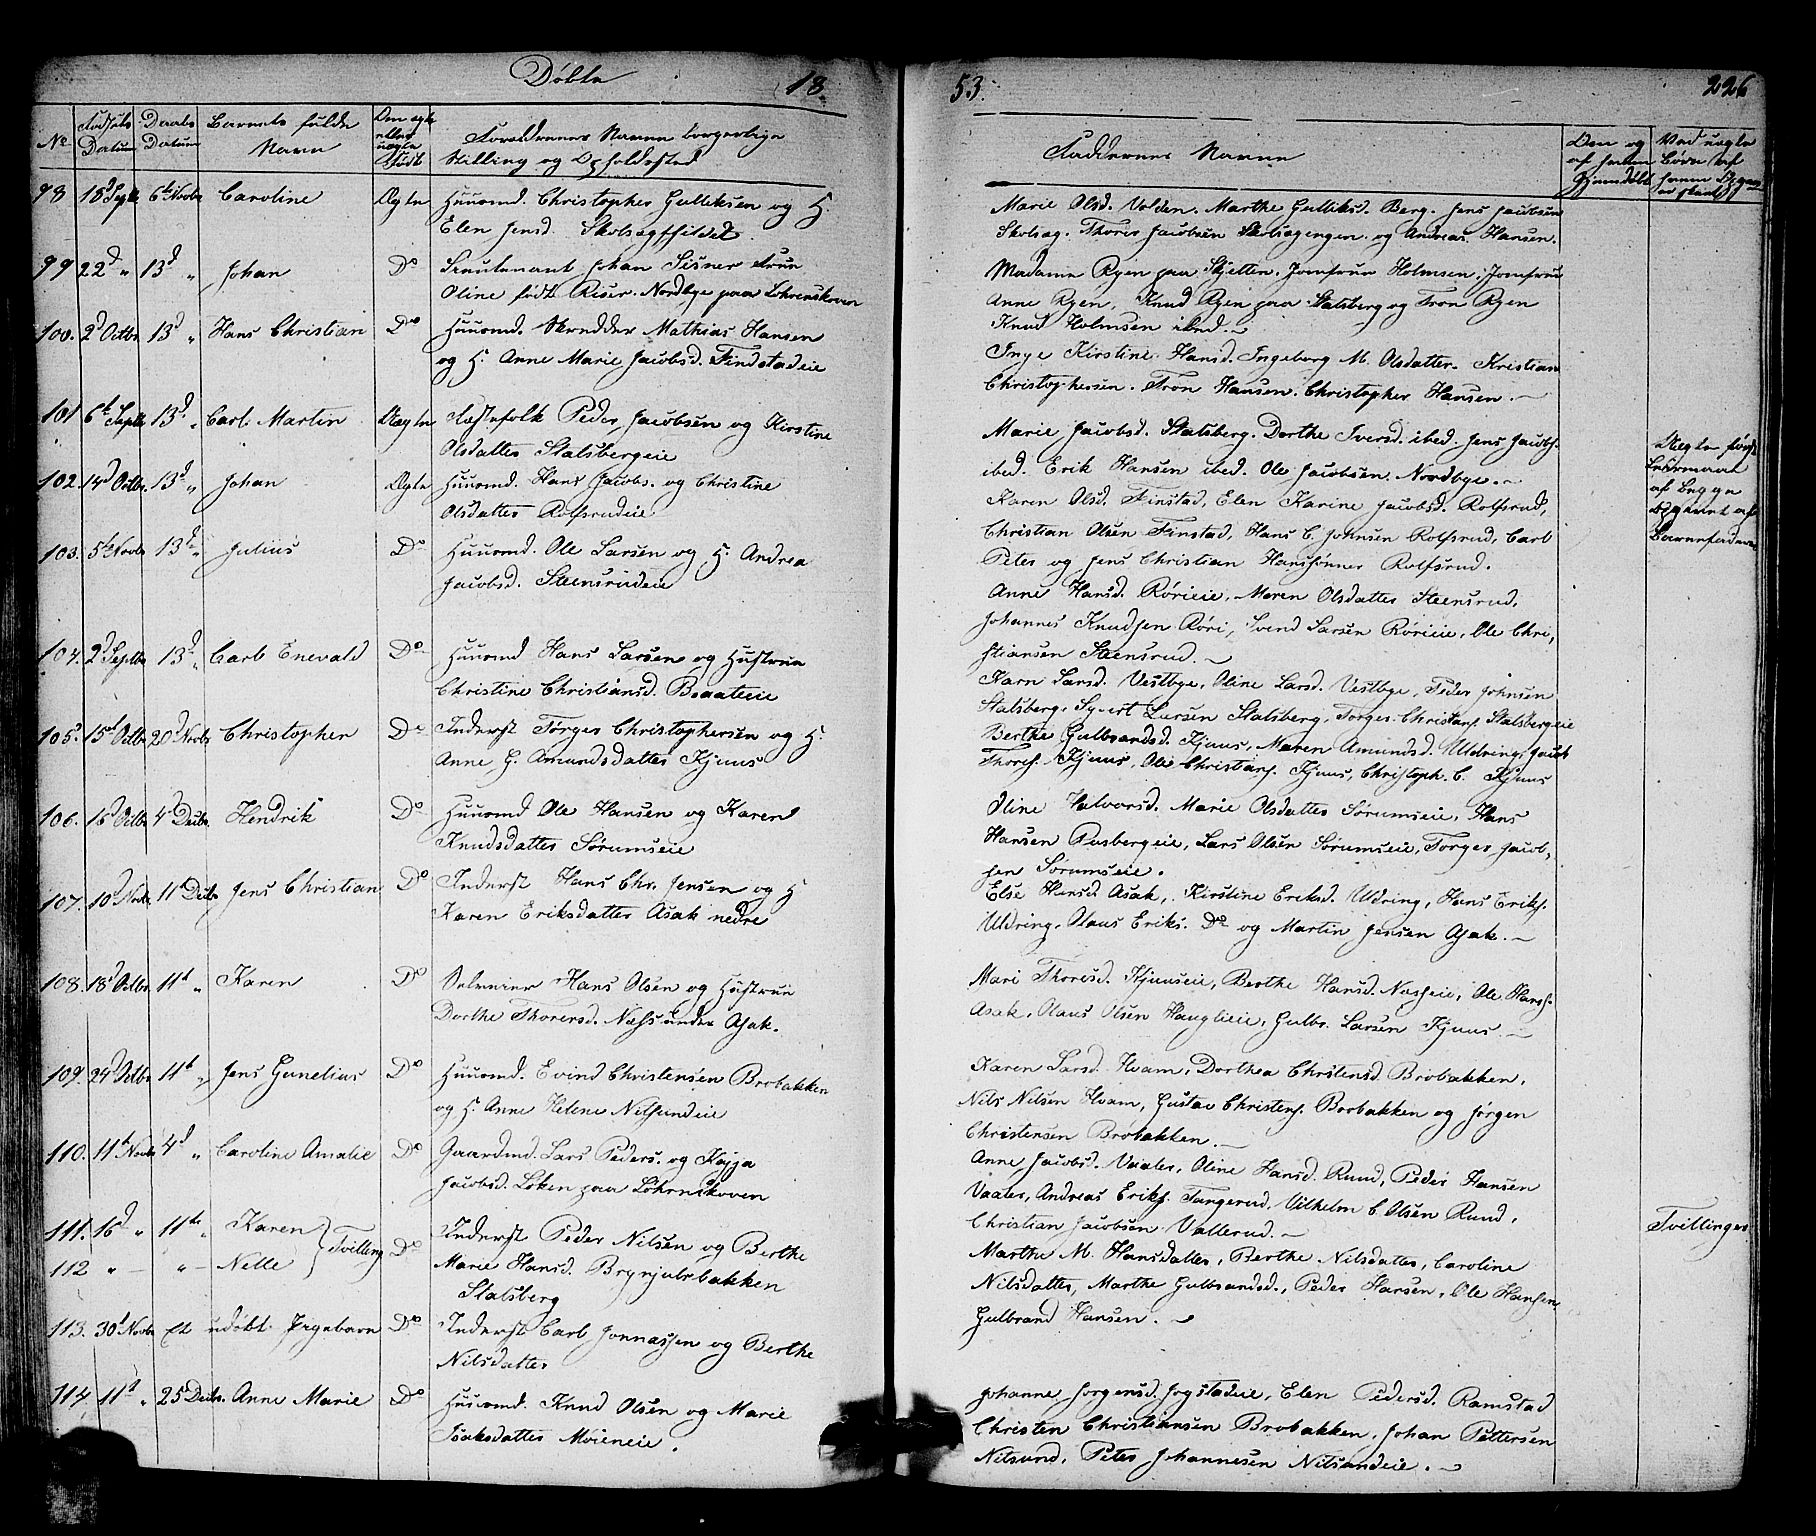 Døbte 18
53. 226
No
Fødsels Datum
Daabs Datum
Barnets fulde Navn
Den ægte eller uægte Født
Forældrenes Navne borgerlige Stilling og Opholdssted
Faddernes Navne
98 18d Septb 6te Novbr Caroline Ægte Huusmd. Christopher Gulliksen og H.
Elen Jensd. Skolsagfhildet.
Marie Olsd. Volden. Marthe Gulliksd. Berg. Jens Jacobsen
Skolsag. Thorer Jacobsen Skolsagengen. og Andreas Hansen.
99 22d " 13d " Johan Do Lieutenant Johan Sisner Frue
Oline født Riser. Nordbye paa Løhrenskoven
Madame Ryen paa Skjetten. Jomfrue Holmsen. Jomfrue
Anne Ryen, Knud Ryen paa Stalsberg og Tron Ryen
Knud Holmsen ibed.
100. 2d Octbr 13d " Hans Christian Do Huusmd. Skredder Mathias Hansen
og H. Anne Marie Jacobsd. Findstadeie
Inge Kirstine Hansd. Ingeborg M. Olsdatter. Kristian
Christophersen. Tron Hansen. Christopher Hansen.
101 6te Septb 13d " Carl Martin Uægte Fæstefolk Peder Jacobsen og Kirstine
Olsdatter Stalsbergeie
Marie Jacobsd. Stalsberg. Dorthe Iversd. ibed. Jens Jacobs.
ibed. Erik Hansen ibed. Ole Jacobsen. Nordbye.
102. 14d Octbr. 13d " Johan Ægte Huusmd. Hans Jacobs. og Christine
Olsdatter Rolfsrudeie
Karen Olsd. Finstad, Elen Karine Jacobsd. Rolfsrud,
Christian Olsen Finstad, Hans C. Johnsen Rolfsrud, Carl
Peter og Jens Christian Hanssønner Rolfsrud.
103. 5te Novbr 13d " Julius Do Huusmd. Ole Larsen og H. Andrea
Jacobsd. Steensrudeie
Anne Hansd. Rørieie, Maren Olsdatter Steensrud,
Johannes Knudsen Røri, Svend Larsen Rørieie, Ole Chri-
stiansen Steensrud.
104. 2d Septbr 13d " Carl Enevald Do Huusmd Hans Larsen og Hustrue
Christine Christiansd. Braateeie
Karn Larsd. Vestbye, Oline Larsd. Vestbye, Peder Johnsen
Stalsberg, Syvert Larsen Stalsberg, Torger Christians. Stalsbergeie
105. 15d Octbr 20d Novbr Christopher Do Inderst Törger Christophersen og H.
Anne G. Amundsdatter Kjuus
Berthe Gulbrandsd. Kjuus, Maren Amundsd. Uldring, Jacob
Thors. Kjuus, Ole Christians. Kjuus, Christoph. C. Kjuus
106. 16d Octbr 4d Decbr. Hendrik Do Huusmd Ole Hansen og Karen
Knudsdatter Sørumseie
Oline Halvorsd. Marie Olsdatter Sørumseie, Hans
Hansen Pusbergeie, Lars Olsen Sørumseie, Torger Jacob-
sen Sørumseie.
107. 10d Novbr. 11te Decbr Jens Christian Do Inderst Hans Chr. Jensen og H
Karen Eriksdatter Asak nedre
Else Hansd Asak, Kirstine Eriksd. Uldring, Hans Eriks.
Uldring, Olaus Eriks. Do og Martin Jensen Asak.
108. 18d Octbr. 11te " Karen Do Selveier Hans Olsen og Hustrue
Dorthe Thorersd. Næss under Asak.
Mari Thoresd. Kjuuseie, Berthe Hansd. Næsseie, Ole Hans.
Asak, Olaus Olsen Hauglieie, Gulbr. Larsen Kjuus
109. 24d Octbr 11te " Jens Gunelius Do Huusmd. Evind Christensen Brobakken
og H. Anne Helene Nitsundeie
Karen Larsd. Hvam, Dorthea Christensd. Brobakken,
Nils Nilsen Hvam, Gustav Christens. Brobakken og Jørgen
Christensen Brobakken.
110. 11te Novbr 4d " Caroline Amalie Do Gaardmd. Lars Peders. og Kajja
Jacobsd. Løken paa Løhrnskoven
Anne Jacobsd. Vaaler, Oline Hansd. Rund, Peder Hansen
Vaaler, Andreas Eriks. Tangerud, Vilhelm C. Olsen Rund,
Christian Jacobsen Vallerud.
111. 16d " 11te " Karen } Tvilling Do Inderst Peder Nilsen og Berthe
112 " — "— Nelle Marie Hansd. Brynjulsbakken
Stalsberg
Marthe M. Hansdatter, Berthe Nilsdatter, Caroline
Nilsdatter, Marthe Gulbrandsd., Peder Hansen, Ole Hansen
Gulbrand Hansen.
Tvillinger
113. 30d Novbr Et udøbt Pigebarn Do Inderst Carl Jonnassen og Berthe
Nilsdatter
114 11te " 25 Decbr. Anne Marie Do Huusmd. Knud Olsen og Marie
Isaksdatter Moieneie.
Johanne Jorgensd. Jogstadeie, Elen Pedersd. Ramstad
Christen Christiansen Brobakken, Johan Pettersen
Nitsund, Peter Johannesen Nitsundeie.